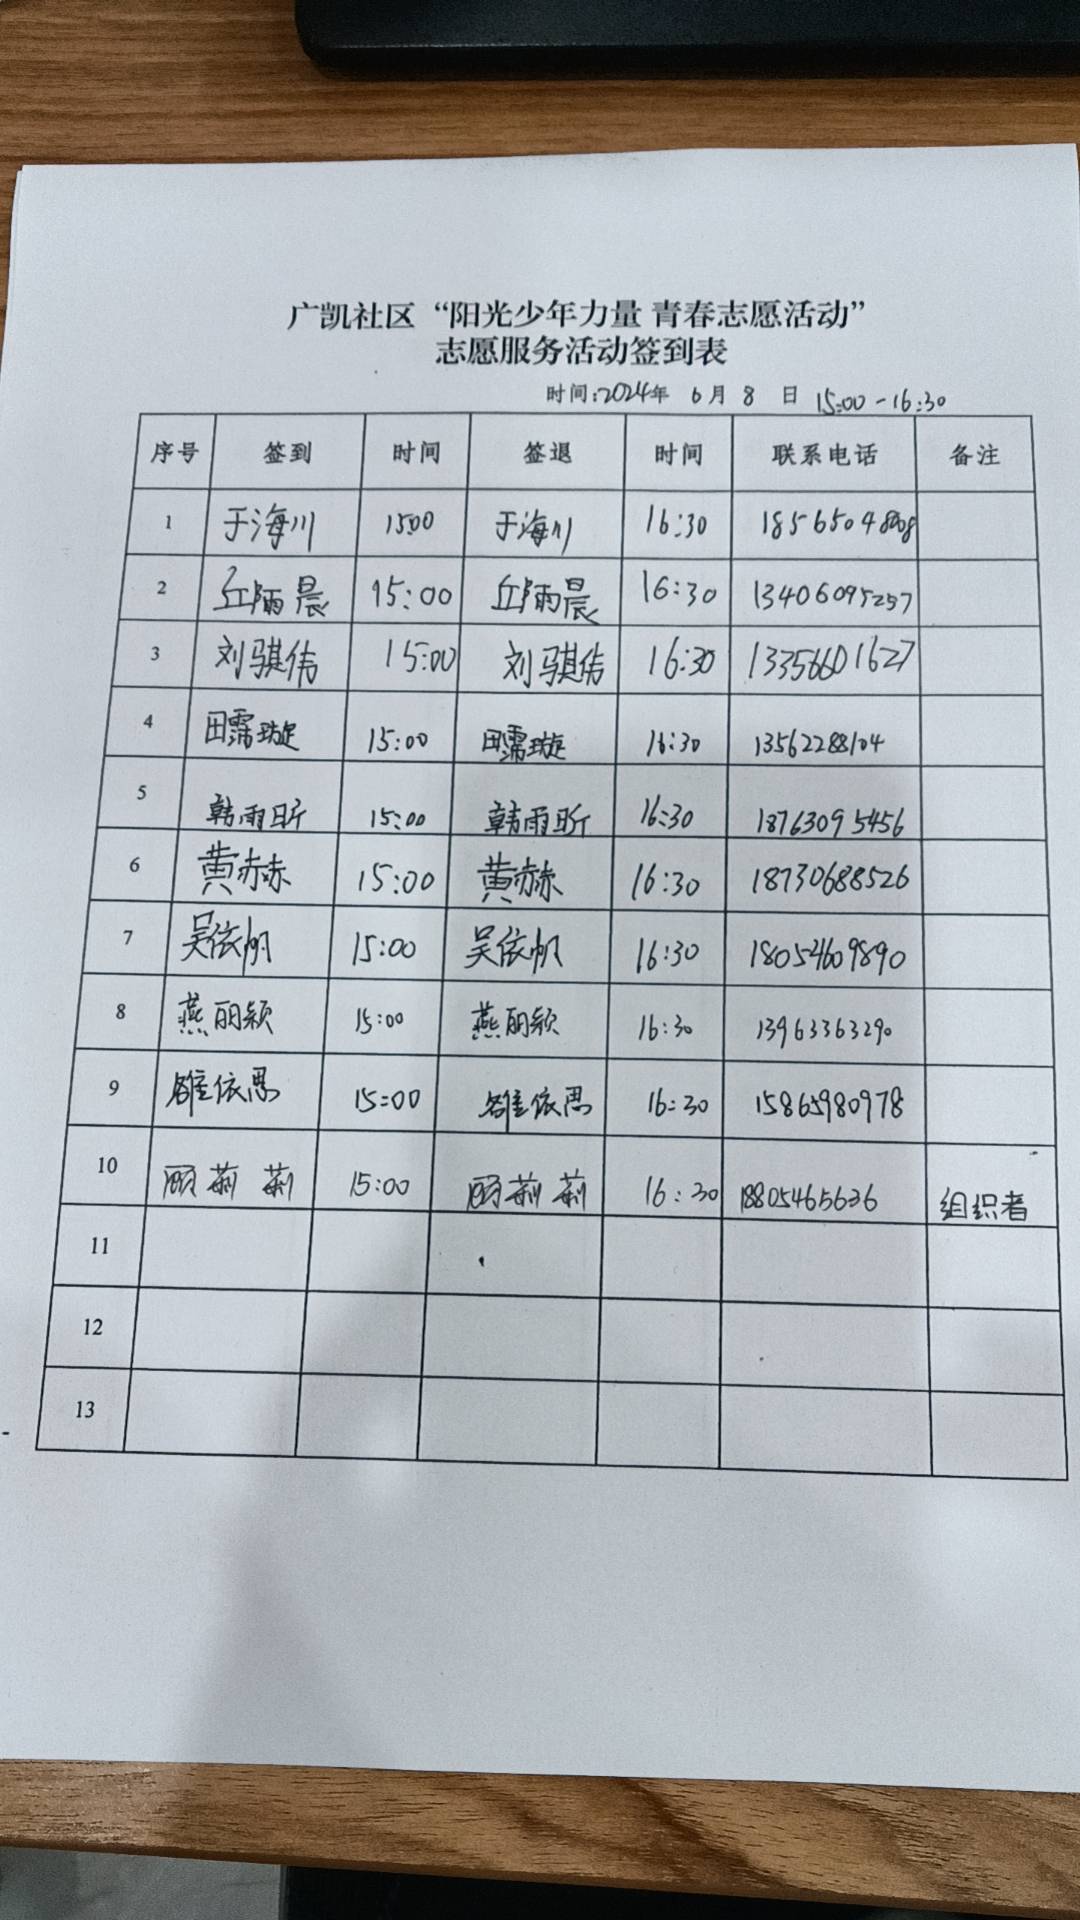 广凯社区“阳光少年力量 青春志愿活动”
志愿服务活动签到表
时间:2024年 6月 8 日 15:00-16:30
序号 签到 时间 签退 时间 联系电话 备注
1 于海川 1500 于海川 16:30 1856504
2 丘雨晨 15:00 丘雨晨 16:30 13406095257
3 刘骐伟 15:00 刘骐伟 16:30 13356601627
4 田霈璇 15:00 田霈璇 16:30 13562288104
5 韩雨昕 15:00 韩雨昕 16:30 18763095456
6 黄赫 15:00 黄赫 16:30 18730688526
7 吴依帆 15:00 吴依帆 16:30 18054609890
8 燕丽颖 15:00 燕丽颖 16:30 13963363290
9 雒依思 15:00 雒依思 16:30 15865980978
10 顾莉莉 15:00 顾莉莉 16:30 18805465636 组织者
11
12
13